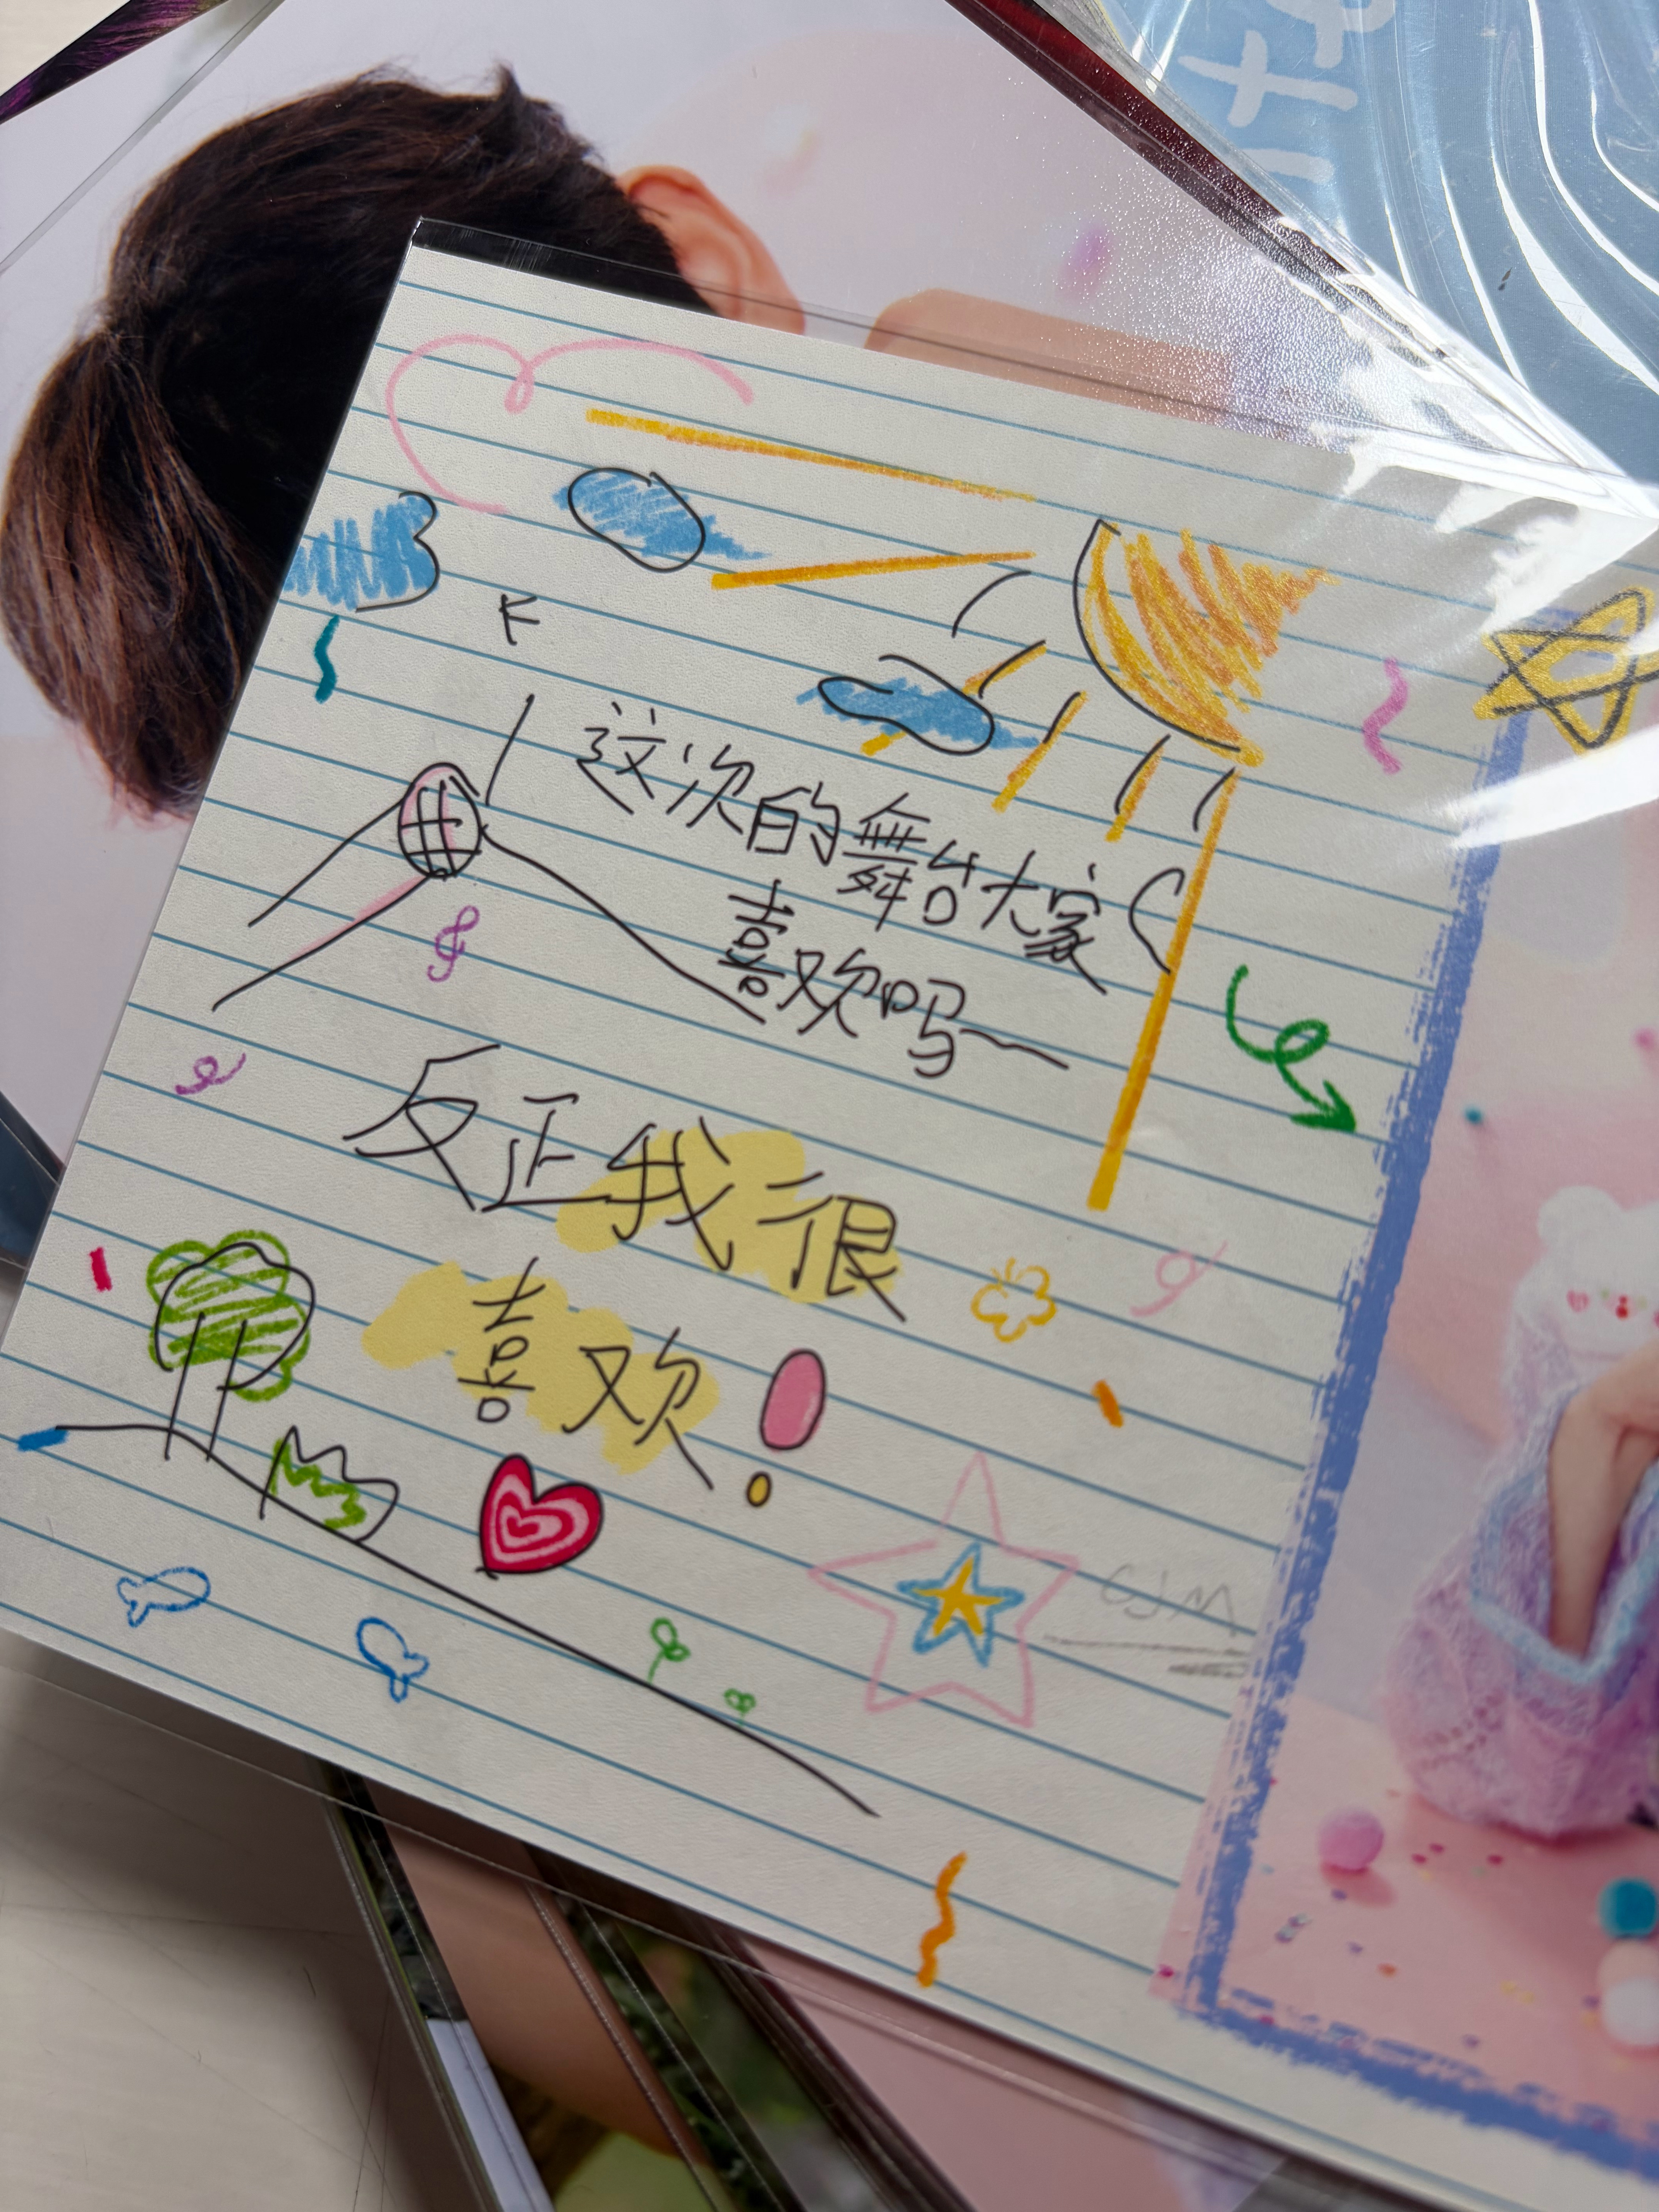 这次的舞台大家
喜欢吗
反正我很
喜欢!
CJM